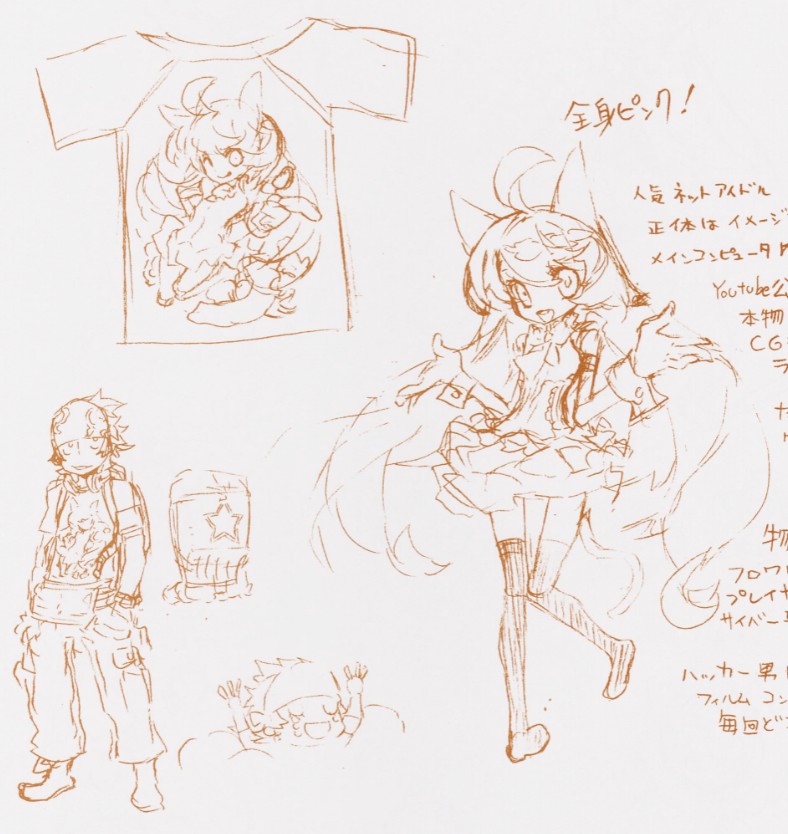 全身ピンク!
人気 ネットアイドル
正体は イメージ
メインコンピュータ
Youtube公
本物
CG
ラ
物
フロワ
プレイヤ
サイバー
ハッカー男
フィルム コン
毎回ど